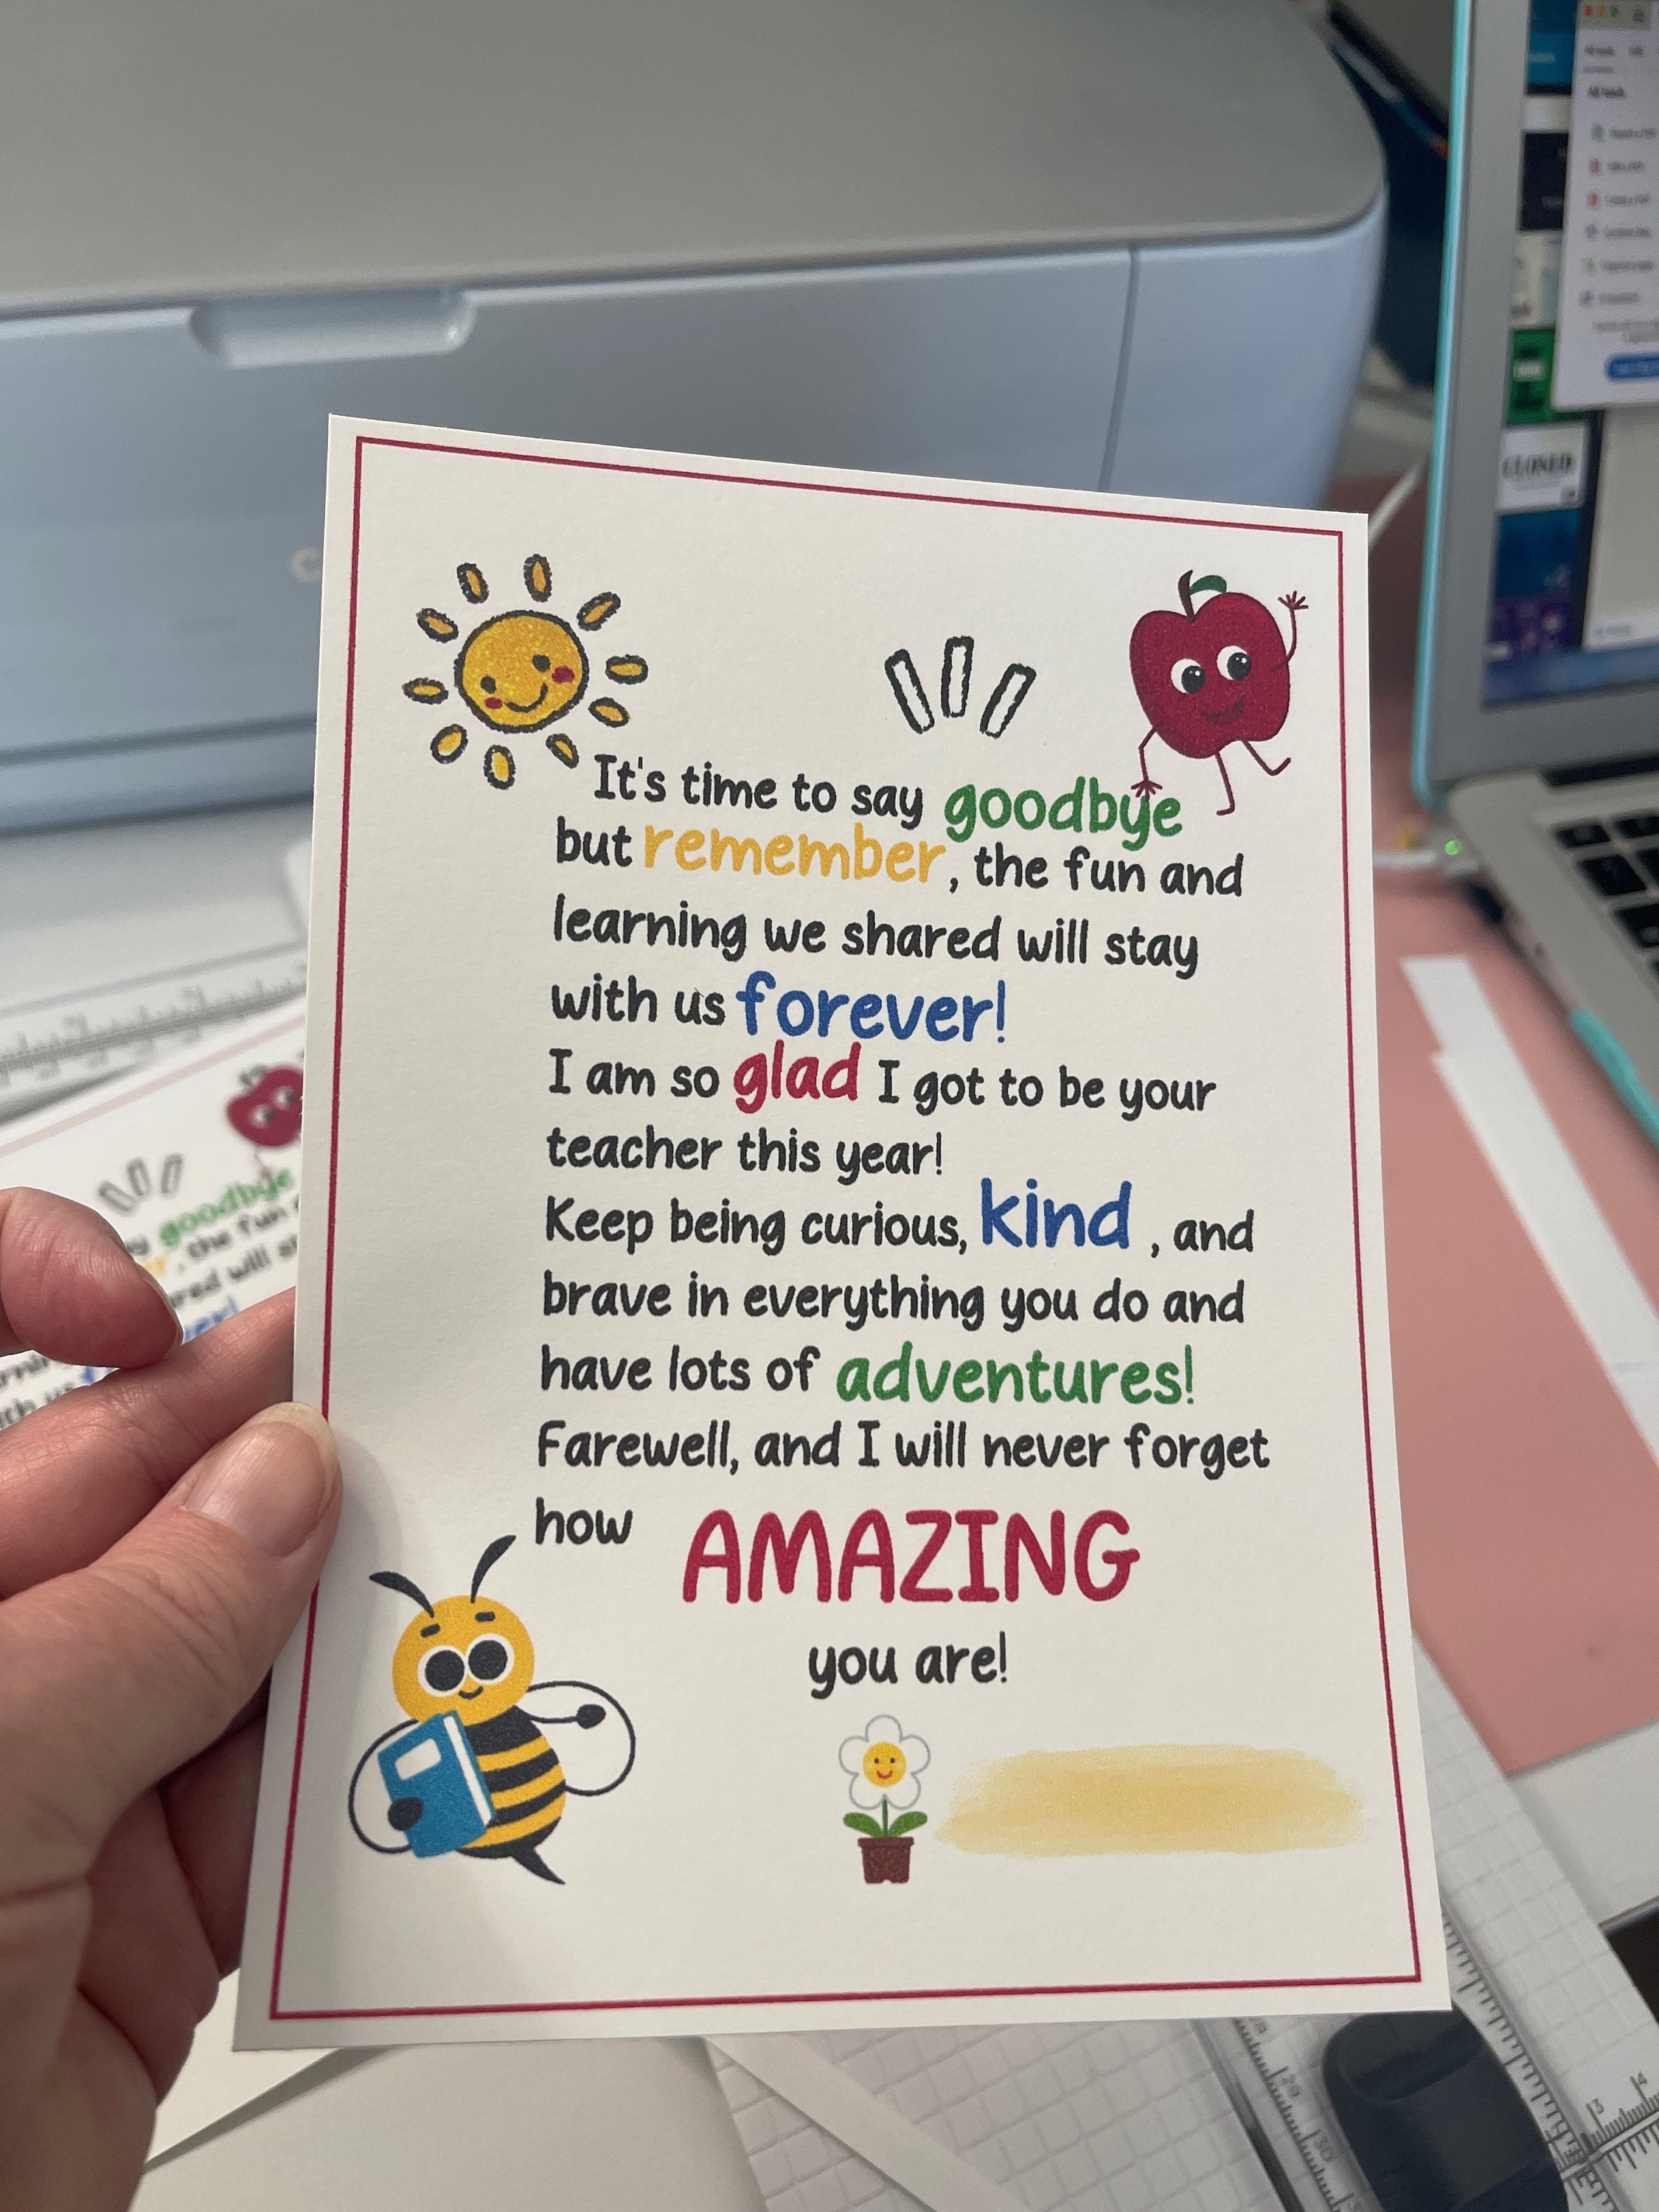 It's time to say goodbye
but remember, the fun and
learning we shared will stay
with us forever!
I am so glad I got to be your
teacher this year!
Keep being curious, kind , and
brave in everything you do and
have lots of adventures!
Farewell, and I will never forget
how AMAZING
you are!
goodbye
the fun
will
CLOSED
29
30
13
14